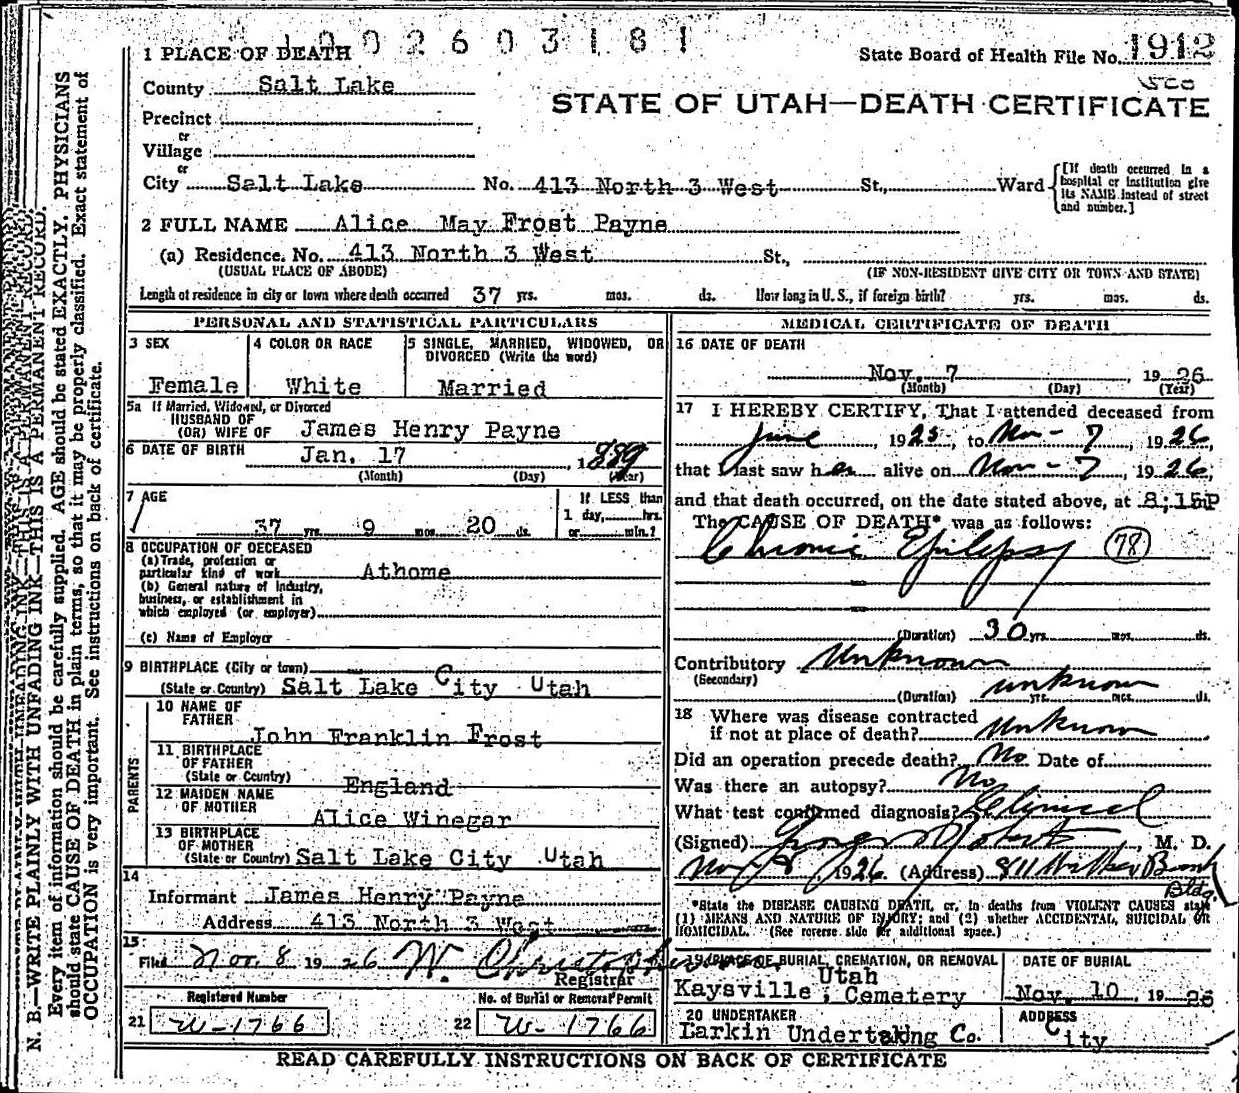 1002603181
1 PLACE OF DEATH
State Board of Health File No. 1912
County Salt Lake
500
STATE OF UTAH—DEATH CERTIFICATE
Precinct
or
Village
or
City Salt Lake No. 413 North 3 West St., Ward
[If death occurred in a hospital or institution give its NAME instead of street and number.]
2 FULL NAME Alice May Frost Payne
(a) Residence. No. 413 North 3 West St.,
(USUAL PLACE OF ABODE) (IF NON-RESIDENT GIVE CITY OR TOWN AND STATE)
Length of residence in city or town where death occurred 37 yrs. mos. ds. How long in U. S., if foreign birth? yrs. mos. ds.
PERSONAL AND STATISTICAL PARTICULARS
3 SEX
Female
4 COLOR OR RACE
White
5 SINGLE, MARRIED, WIDOWED, OR
DIVORCED (Write the word)
Married
5a If Married, Widowed, or Divorced
HUSBAND OF
(OR) WIFE OF James Henry Payne
6 DATE OF BIRTH Jan. 17, 1889
(Month) (Day) (Year)
7 AGE
37 yrs. 9 mos. 20 ds.
If LESS than
1 day, hrs.
or min.?
8 OCCUPATION OF DECEASED
(a) Trade, profession or
particular kind of work Athome
(b) General nature of Industry,
business, or establishment in
which employed (or employer)
(c) Name of Employer
9 BIRTHPLACE (City or town)
(State or Country) Salt Lake City Utah
PARENTS
10 NAME OF
FATHER
John Franklin Frost
11 BIRTHPLACE
OF FATHER
(State or Country) England
12 MAIDEN NAME
OF MOTHER
Alice Winegar
13 BIRTHPLACE
OF MOTHER
(State or Country) Salt Lake City Utah
14
Informant James Henry Payne
Address 413 North 3 West
15
Filed Nov. 8 1926 W. Christopherson
Registrar
Registered Number
21 W-1766
No. of Burial or Removal Permit
22 W-1766
MEDICAL CERTIFICATE OF DEATH
16 DATE OF DEATH
Nov. 7, 1926
(Month) (Day) (Year)
17 I HEREBY CERTIFY, That I attended deceased from
June, 1925, to Nov-7, 1926,
that I last saw her alive on Nov-7, 1926,
and that death occurred, on the date stated above, at 8;15P
The CAUSE OF DEATH* was as follows:
Chronic Epilepsy (78)
(Duration) 30 yrs. mos. ds.
Contributory Unknown
(Secondary)
unknown
(Duration) yrs. mos. ds.
18 Where was disease contracted
if not at place of death? Unknown
Did an operation precede death? No Date of
Was there an autopsy? No
What test confirmed diagnosis? Clinical
(Signed) , M. D.
Nov 8, 1926. (Address) 811 Walker Bank
Bldg
*State the DISEASE CAUSING DEATH, or, in deaths from VIOLENT CAUSES state
(1) MEANS AND NATURE OF INJURY; and (2) whether ACCIDENTAL, SUICIDAL OR
HOMICIDAL. (See reverse side for additional space.)
19 PLACE OF BURIAL, CREMATION, OR REMOVAL
Utah
Kaysville ; Cemetery
DATE OF BURIAL
Nov. 10, 1926
20 UNDERTAKER
Larkin Undertaking Co.
ADDRESS
City
READ CAREFULLY INSTRUCTIONS ON BACK OF CERTIFICATE
N. B.—WRITE PLAINLY WITH UNFADING INK—THIS IS A PERMANENT RECORD
Every item of information should be carefully supplied. AGE should be stated EXACTLY. PHYSICIANS
should state CAUSE OF DEATH in plain terms, so that it may be properly classified. Exact statement of
OCCUPATION is very important. See instructions on back of certificate.